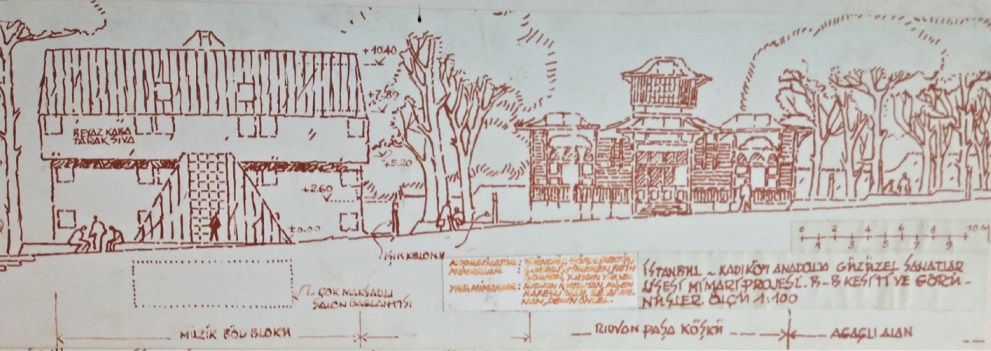 +10.40
+7.80
BEYAZ KABA
TARAK SIVA
+5.20
+2.60
±0.00
0 2 4 6 8 10 M
1 3 5 7 9
IŞIK KOLONU
İSTANBUL - KADIKÖY ANADOLU GÜZEL SANATLAR
LİSESİ MİMARİ PROJESİ. B-B KESİTİ VE GÖRÜ-
NÜŞLER ÖLÇÜ 1:100
ÇOK MAKSADLI
SALON BAĞLANTISI
MÜZİK BÖL BLOKU
RIDVAN PAŞA KÖŞKÜ
AĞAÇLI ALAN